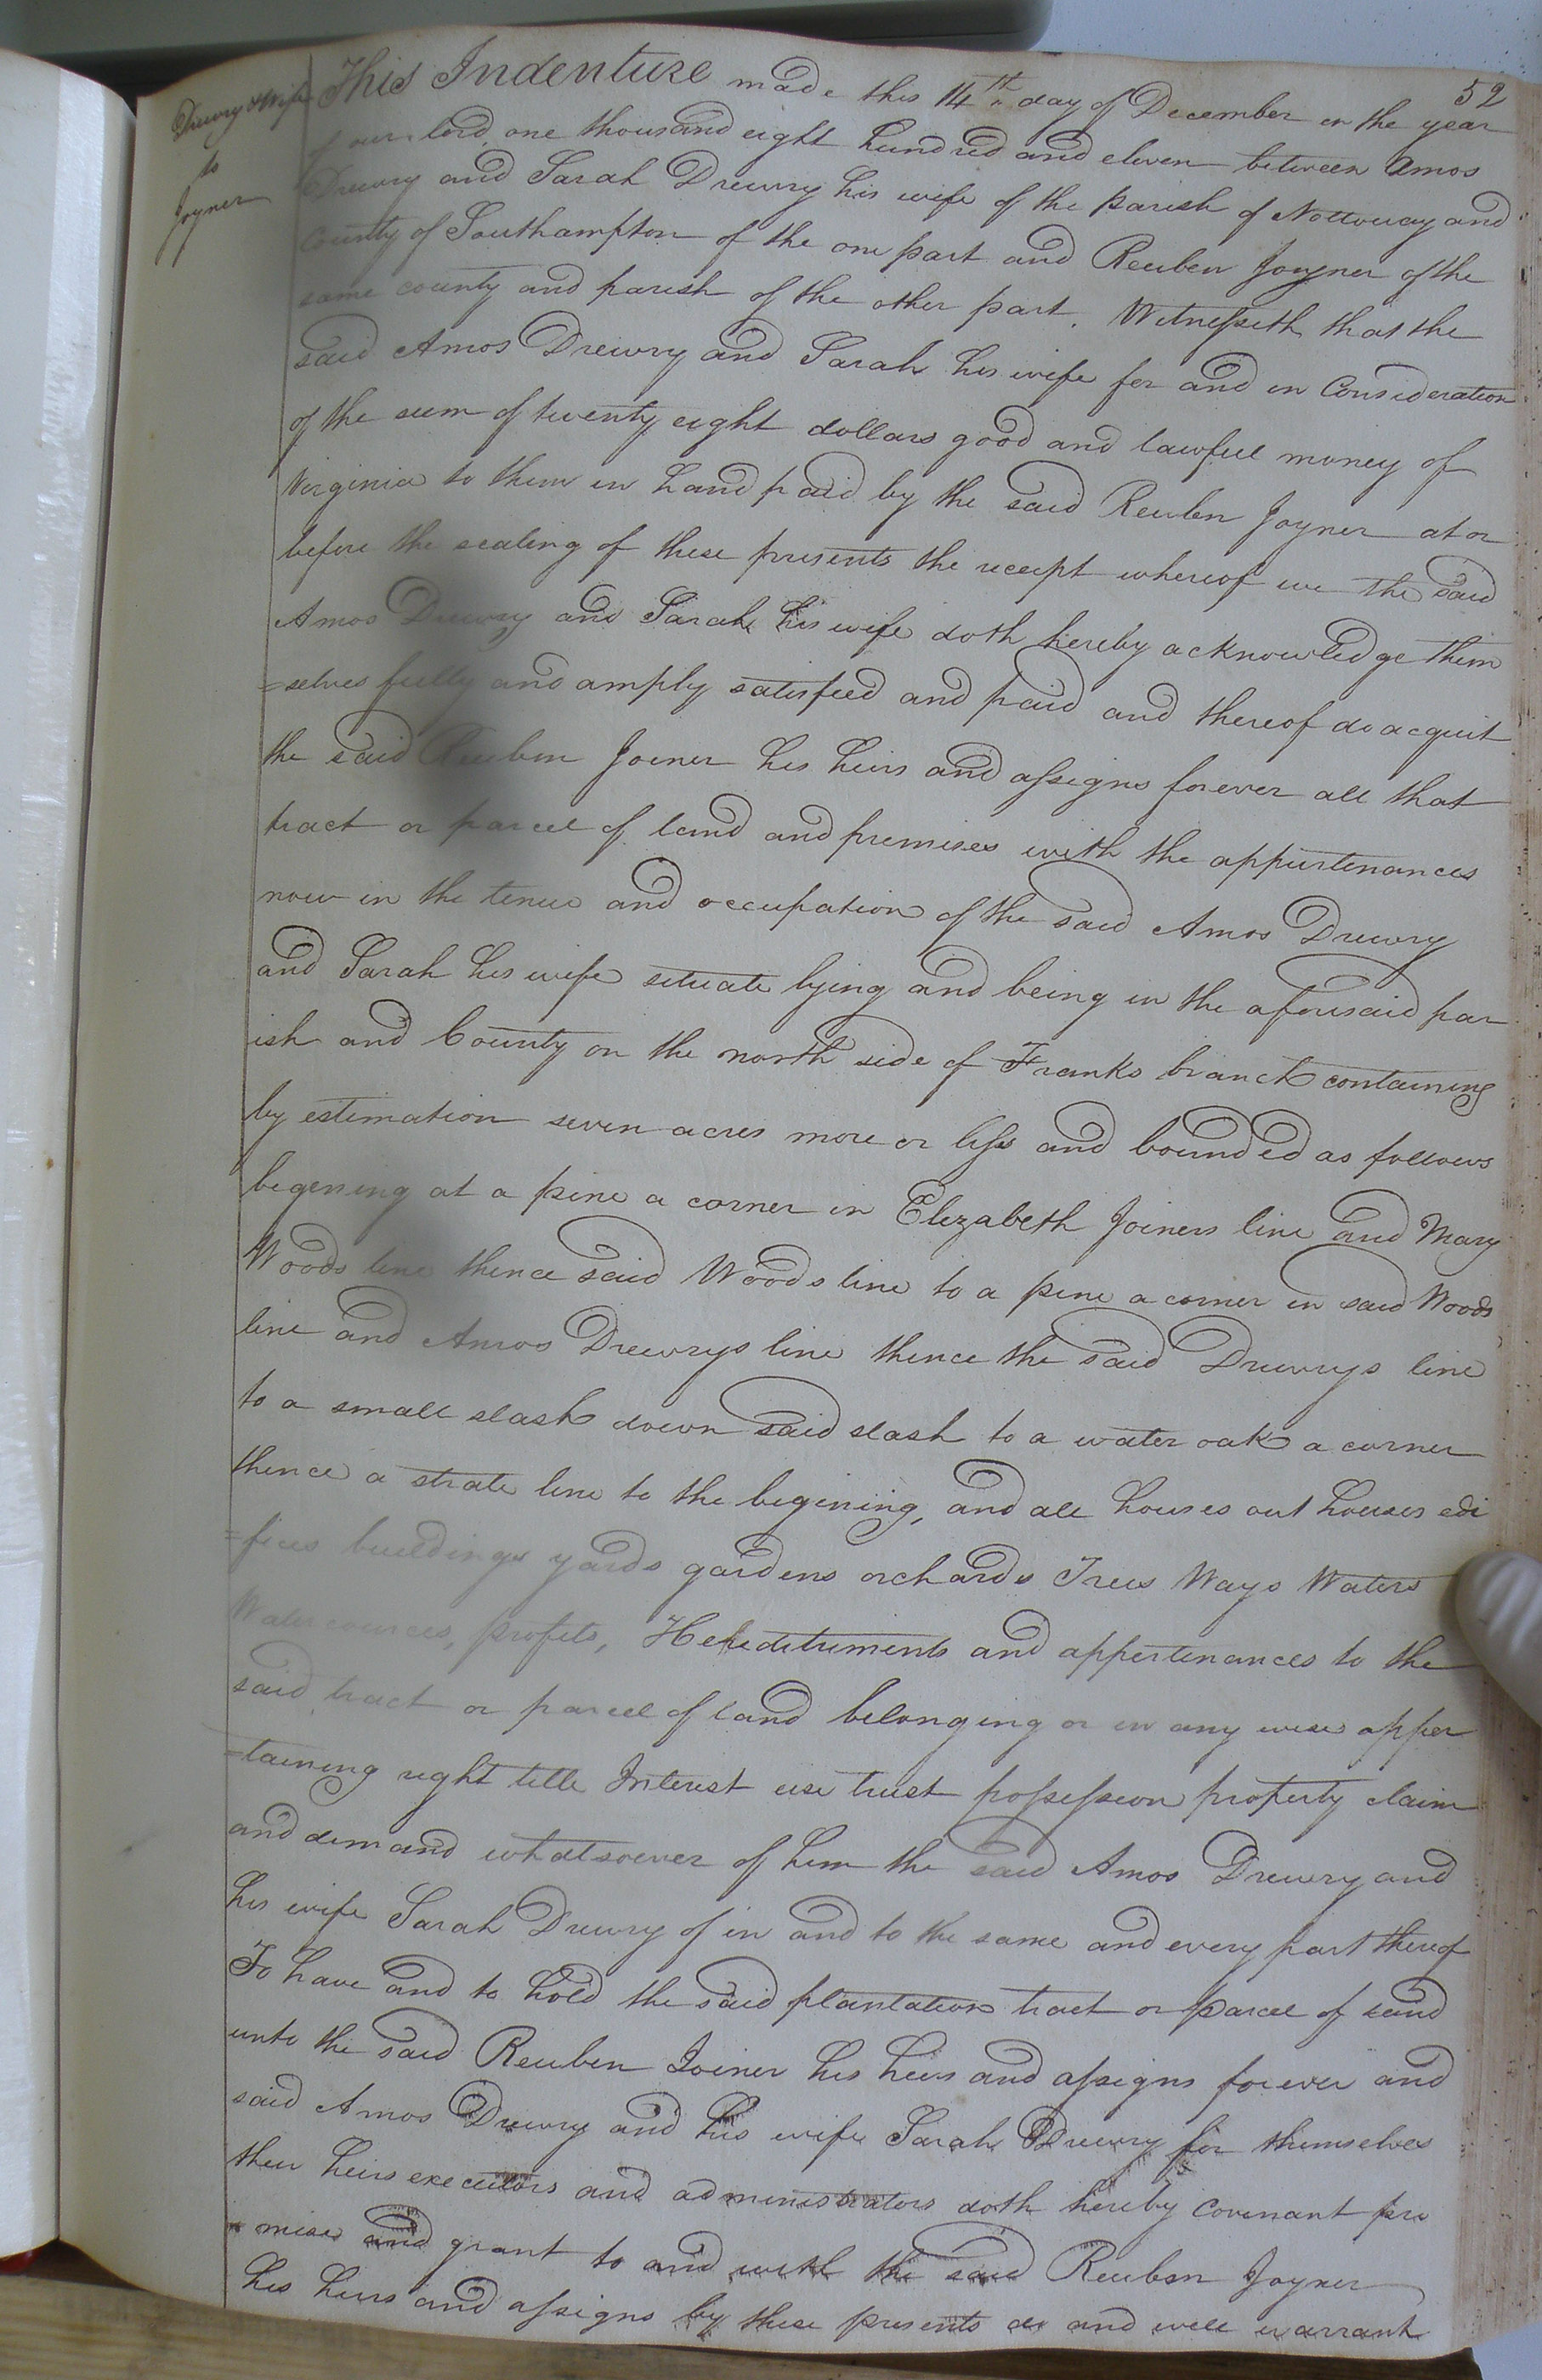 52
Drewry & Wife
to
Joyner
This Indenture made this 14th day of December in the year
of our lord one thousand eight hundred and eleven between Amos
Drewry and Sarah Drewry his wife of the parish of Nottoway and
County of Southampton of the one part and Reuben Joyner of the
same county and parish of the other part. Witnesseth that the
said Amos Drewry and Sarah his wife for and in Consideration
of the sum of twenty eight dollars good and lawful money of
Virginia to them in hand paid by the said Reuben Joyner at or
before the sealing of these presents the receipt whereof we the said
Amos Drewry and Sarah his wife doth hereby acknowledge them
=selves fully and amply satisfied and paid and thereof do acquit
the said Reuben Joiner his heirs and assigns forever all that
tract or parcel of land and premises with the appurtenances
now in the tenue and occupation of the said Amos Drewry
and Sarah his wife situate lying and being in the aforesaid par
ish and County on the north side of Franks branch containing
by estimation seven acres more or less and bounded as follows
begening at a pine a corner in Elizabeth Joiners line and Mary
Woods line thence said Woods line to a pine a corner in said Woods
line and Amos Drewrys line thence the said Drewrys line
to a small slash down said slash to a water oak a corner
thence a strate line to the begining, and all houses out houses edi
=fices buildings yards gardens orchards Trees Ways Waters
Watercources, profits, Hereditiments and appertenances to the
said tract or parcel of land belonging or in any wise apper
=taining right title Interest use trust possession property claim
and demand whatsoever of him the said Amos Drewry and
his wife Sarah Drewry of in and to the same and every part thereof
To have and to hold the said plantation tract or parcel of land
unto the said Reuben Joiner his heirs and assigns forever and
said Amos Drewry and his wife Sarah Drewry for themselves
their heirs executors and administrators doth hereby Covenant pro
=mise and grant to and with the said Reuben Joyner
his heirs and assigns by these presents do and will warrant